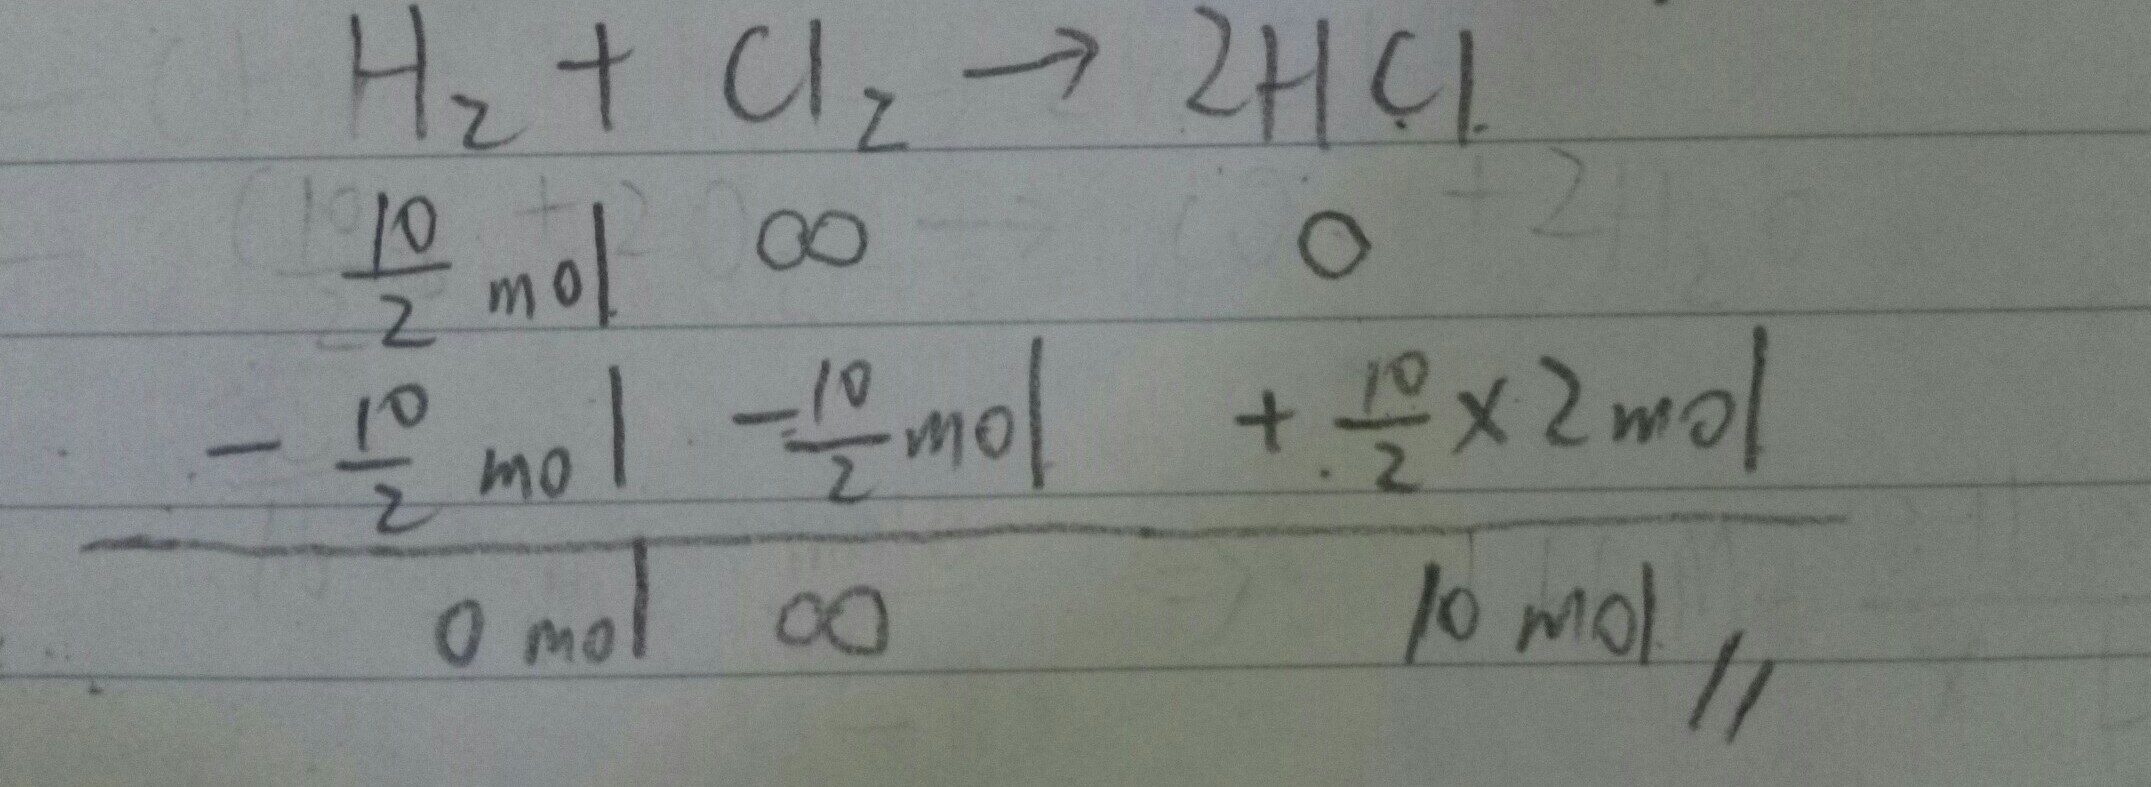 H₂ + Cl₂ → 2HCl
10/2 mol ∞ 0
- 10/2 mol - 10/2 mol + 10/2 × 2 mol
0 mol ∞ 10 mol //